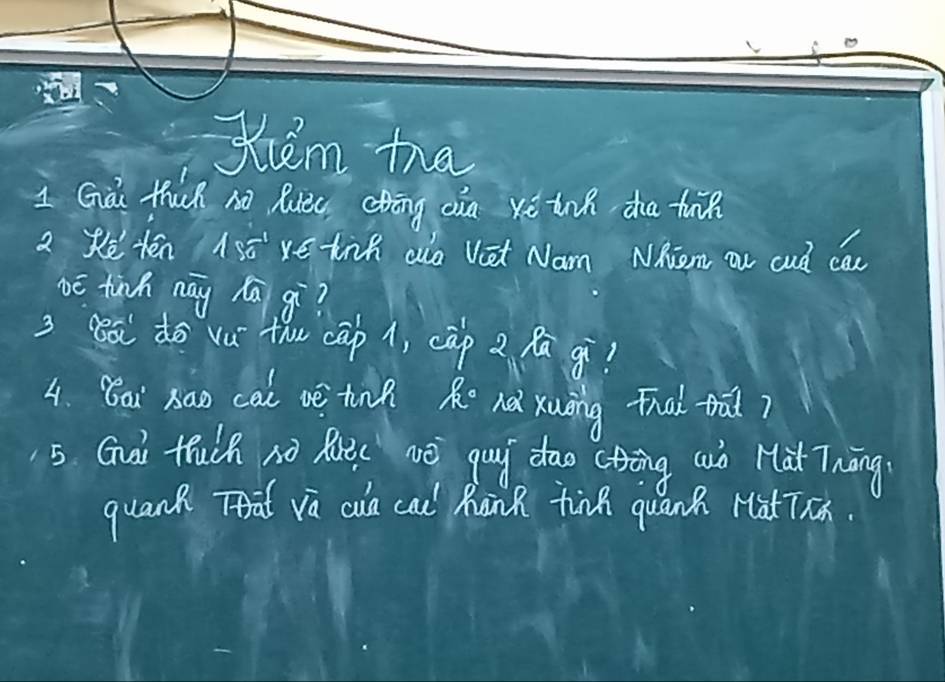 Kiểm tra
1 Giải thích sơ lược cđộng của vệ tinh địa tĩnh
2 Kể tên 1 số vệ tinh của Việt Nam Nhiệm vụ của các
vệ tinh này là gì?
3 Tốc độ vũ trụ cấp 1, cấp 2 là gì?
4. Tại sao các vệ tinh ko rơi xuống Trái Đất?
5. Giải thích sơ lược về quỹ đạo cđộng của Mặt Trăng
quanh TĐất và của các hành tinh quanh Mặt Trời.